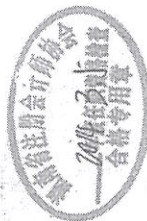 南省注册会计师协会
2014年3月
任职资格检查
合格专用章